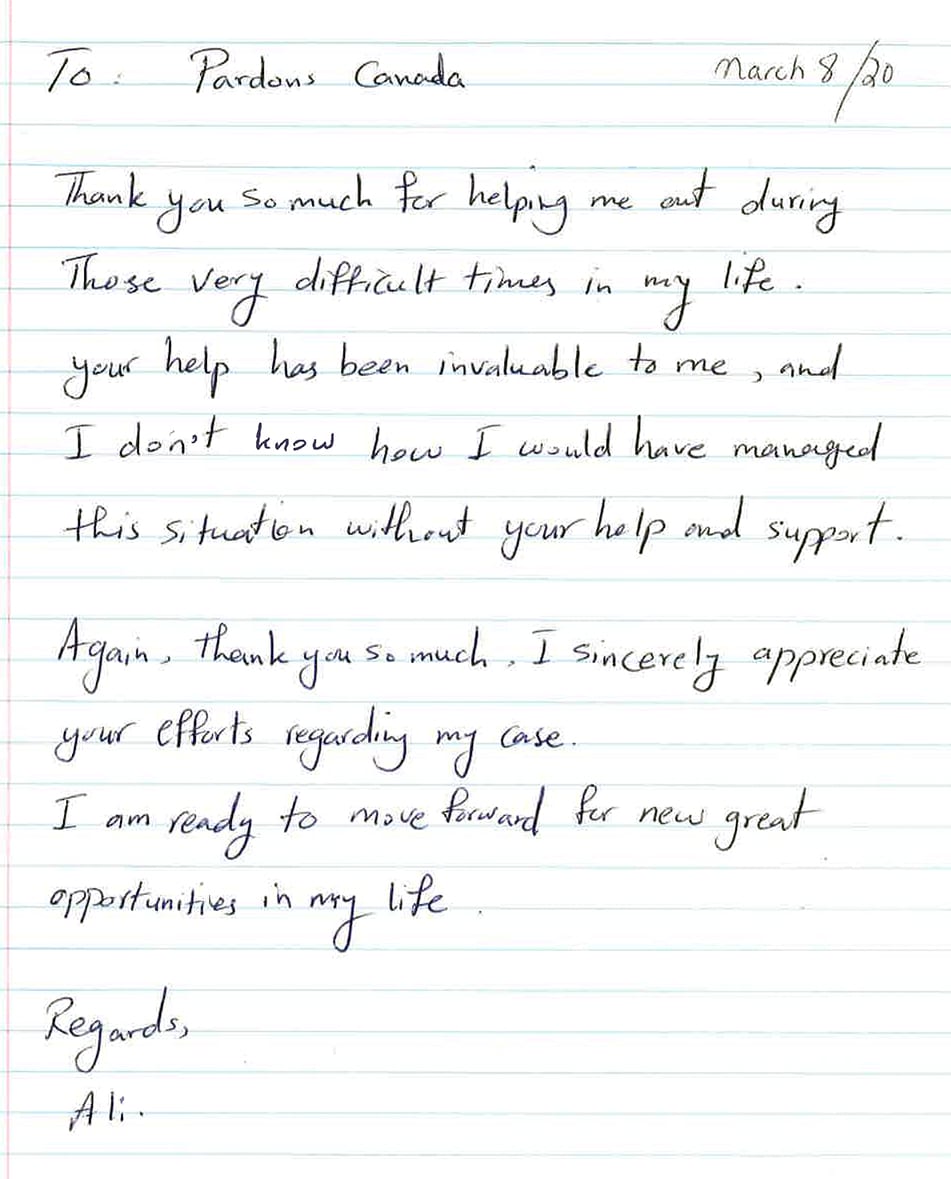 To: Pardons Canada March 8/20
Thank you so much for helping me out during
Those very difficult times in my life.
your help has been invaluable to me, and
I don't know how I would have managed
this situation without your help and support.
Again, thank you so much, I sincerely appreciate
your efforts regarding my case.
I am ready to move forward for new great
opportunities in my life.
Regards,
Ali.